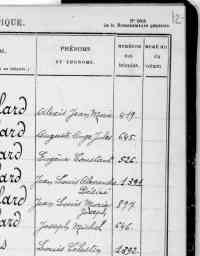 PIQUE.
N° 963
de la Nomenclature générale.
12
PRÉNOMS
ET SURNOMS.
NUMÉROS
des
NUMÉRO
du
volume.
lard Alexis Jean Marie 419.
ard Auguste Ange Jules 645.
ard Eugène Constant 526.
lard Jean Louis Alexandre 1391
Désiré
lard Jean Louis Marie 897
Joseph
ard Joseph Michel 646.
s Louis Célestin 1392.